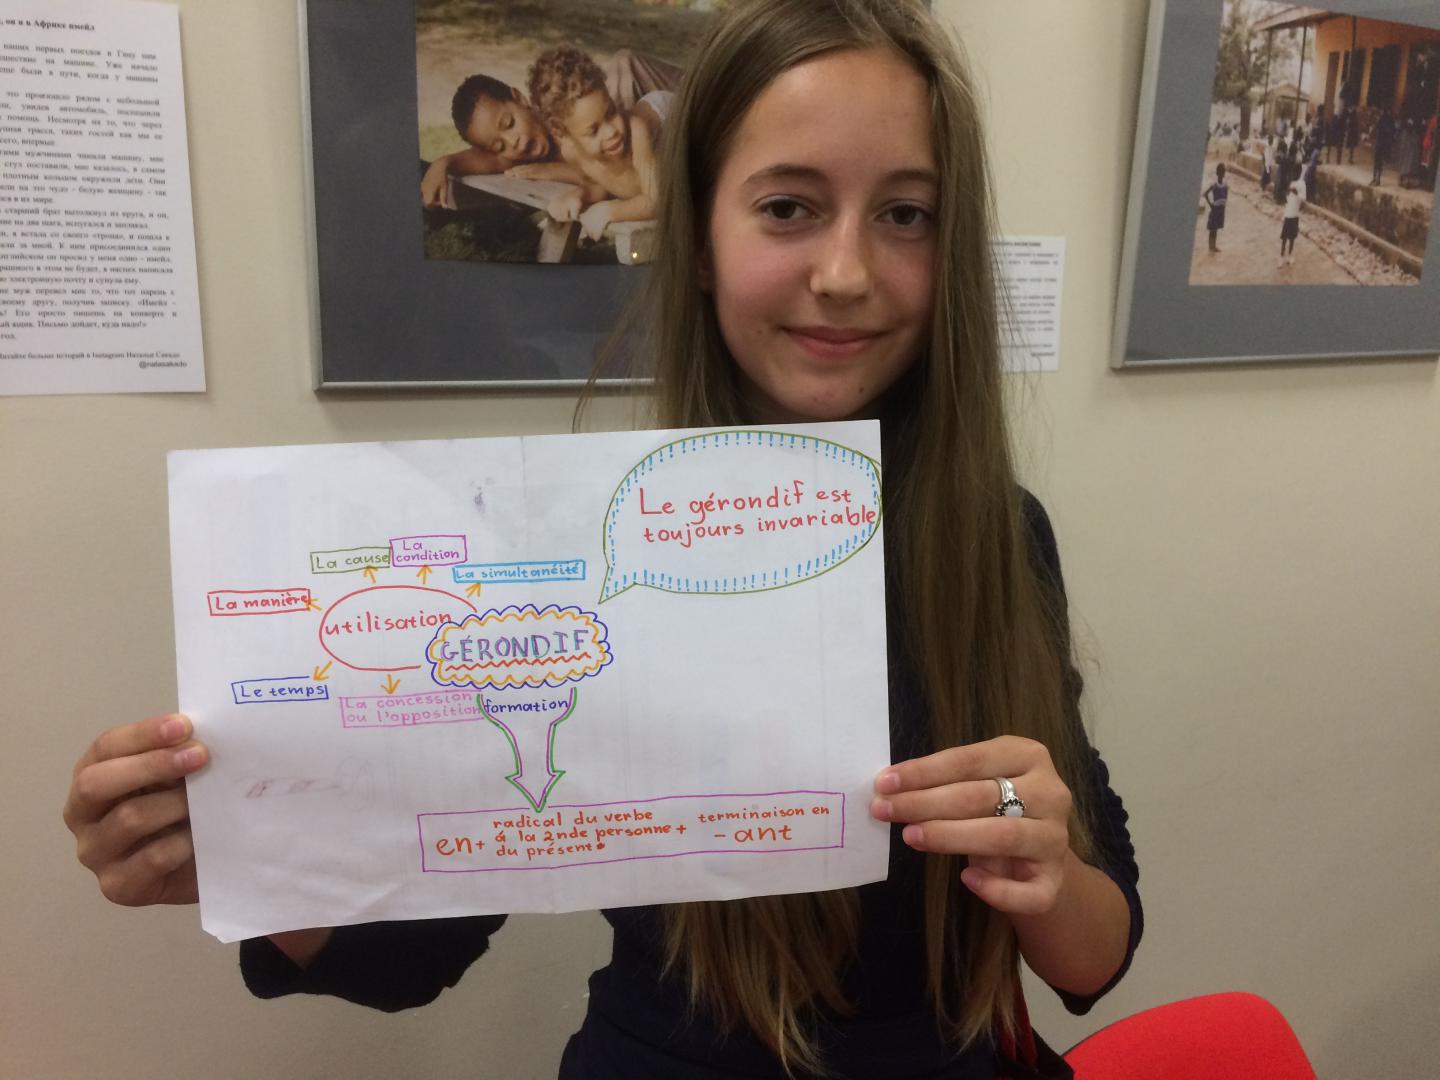 , он и в Африке имейл
наших первых поездок в Гану нам
шествие на машине. Уже начало
еще были в пути, когда у машины
это произошло рядом с небольшой
ли, увидев автомобиль, поспешили
помощь. Несмотря на то, что через
упная трасса, таких гостей как мы ее
сего, впервые.
гими мужчинами чинили машину, мне
стул поставили, мне казалось, в самом
плотным кольцом окружили дети. Они
ели на это чудо - белую женщину - так
ося в их мире.
старший брат вытолкнул из круга, и он,
ние на два шага, испугался и заплакал.
и, я встала со своего «трона», и пошла к
али за мной. К ним присоединился один
английском он просил у меня одно - имейл.
рашного в этом не будет, я наспех написала
ю электронную почту и сунула ему.
не муж перевел мне то, что тот парень с
своему другу, получив записку. «Имейл -
ь! Его просто пишешь на конверте и
ый ящик. Письмо дойдет, куда надо!»
год.
Читайте больше историй в Instagram Натальи Савадо
@natasakado
Le gérondif est
toujours invariable
La cause
La
condition
La simultanéité
La manière
utilisation
GÉRONDIF
Le temps
La concession
ou l'opposition
formation
en +
radical du verbe
á la 2nde personne +
du présent
terminaison en
- ant